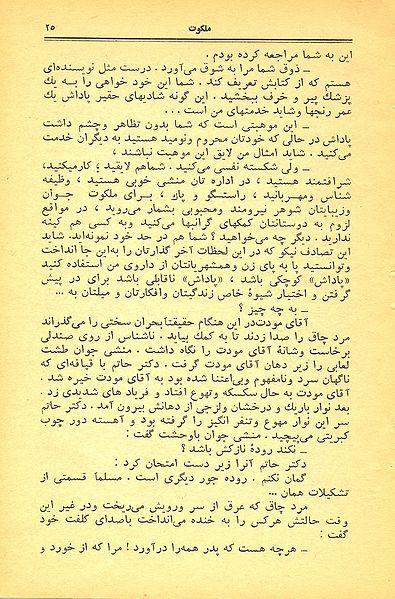 ملکوت
۲۵
این به شما مراجعه کرده بودم .
ـ ذوق شما مرا به شوق می‌آورد . درست مثل نویسنده‌ای
هستم که از کتابش تعریف کند . شما این خود خواهی را به یک
پزشك پیر و خرف ببخشید . این گونه شادیهای حقیر پاداش يك
عمر رنجها وشاید خدمتهای من است ...
ـ این موهبتی است که شما بدون تظاهر وچشم داشت
پاداش در حالی که خودتان محروم ونومید هستید به دیگران خدمت
می‌کنید . شاید امثال من لایق این موهبت نباشند ،
ـ ولی شکسته نفسی می‌کنید . شماهم لایقید ، کارمیکنید،
شرافتمند هستید ، در اداره تان منشی خوبی هستید ، وظیفه
شناس ومهربانید ، راستگو و پاك ، برای ملکوت جوان
وزیبایتان شوهر نیرومند ومحبوبی بشمار می‌روید ، در مواقع
لزوم به دوستانتان کمکهای گرانبها می‌کنید وبه کسی هم کینه
ندارید . دیگر چه می‌خواهید ؟ شما هم در حد خود نمونه‌اید. شاید
این تصادف نیکو که در این لحظات آخر گذارتان را به‌این جا انداخت
وتوانستید پا به پای زن وهمشهریانتان از داروی من استفاده کنید
«پاداش» کوچکی باشد ، «پاداش» ناقابلی باشد برای در پیش
گرفتن و اختیار شیوهٔ خاص زندگیتان وافکارتان و میلتان به ...
ـ به چه چیز ؟
آقای مودت‌در این هنگام حقیقتاً بحران سختی را می‌گذراند
مرد چاق را صدا زدند تا به کمك بیاید . ناشناس از روی صندلی
برخاست وشانهٔ آقای مودت را نگاه داشت . منشی جوان طشت
لعابی را زیر دهان آقای مودت گرفت . دکتر حاتم با قیافه‌ای که
ناگهان سرد ونامفهوم وبی‌اعتنا شده بود به آقای مودت خیره شد .
آقای مودت به حال سکسکه وتهوع افتاد و فریاد های شدیدی زد .
بعد نوار باریك و درخشان ولزجی از دهانش بیرون آمد . دکتر حاتم
سر این نوار مهوع وتنفر انگیز را گرفته بود و آهسته دور چوب
کبریتی می‌پیچید . منشی جوان باوحشت گفت :
ـ نکند رودهٔ نازکش باشد ؟
دکتر حاتم آنرا زیر دست امتحان کرد :
گمان نکنم . روده جور دیگری است . مسلماً قسمتی از
تشکیلات همان ...
مرد چاق که عرق از سر ورویش می‌ریخت ودر غیر این
وقت حالتش هرکس را به خنده می‌انداخت باصدای کلفت خود
گفت :
ـ هرچه هست که پدر همه‌را درآورد ! مرا که از خورد و